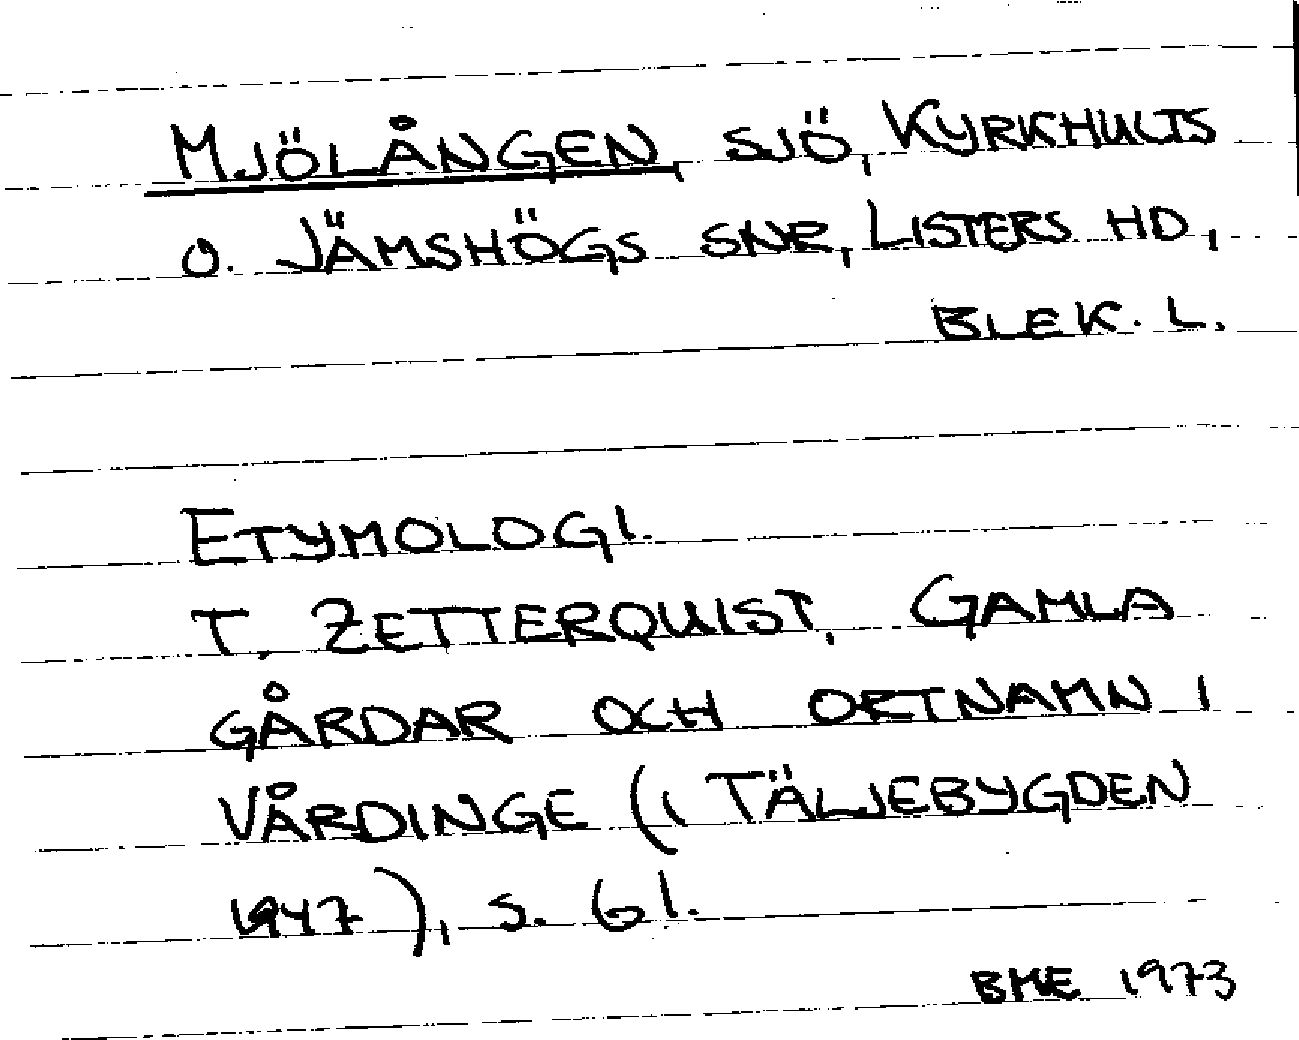 MJÖLÅNGEN, SJÖ, KYRKHULTS
O. JÄMSHÖGS SNR, LISTERS HD,
BLEK. L.
ETYMOLOGI.
T. ZETTERQUIST, GAMLA
GÅRDAR OCH ORTNAMN I
VÅRDINGE (I TÄLJEBYGDEN
1947), S. 61.
BME 1973